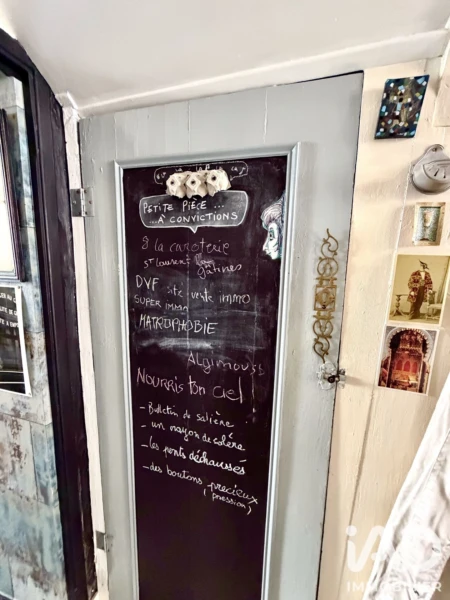 PETITE PIÈCE ...
... À CONVICTIONS
la caroterie
St Laurent
gâtines
DVF site vente immo
SUPER IMMO
MATROPHOBIE
ALGIMOUSS
NOURRIS ton ciel
- Bulletin de salière
- un rayon de colère
- les ponts déchaussés
- des boutons précieux
(pression)
iAD
IMMOBILIER